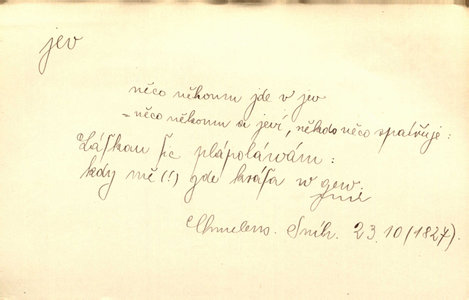 jev
něco někomu jde v jev
= něco někomu se jeví, někdo něco spatřuje:
Láſkau ſic plápolávám:
kdy mě (!) gde kráſa w gew.
Chmelens. Sníh. 23.10 (1827).